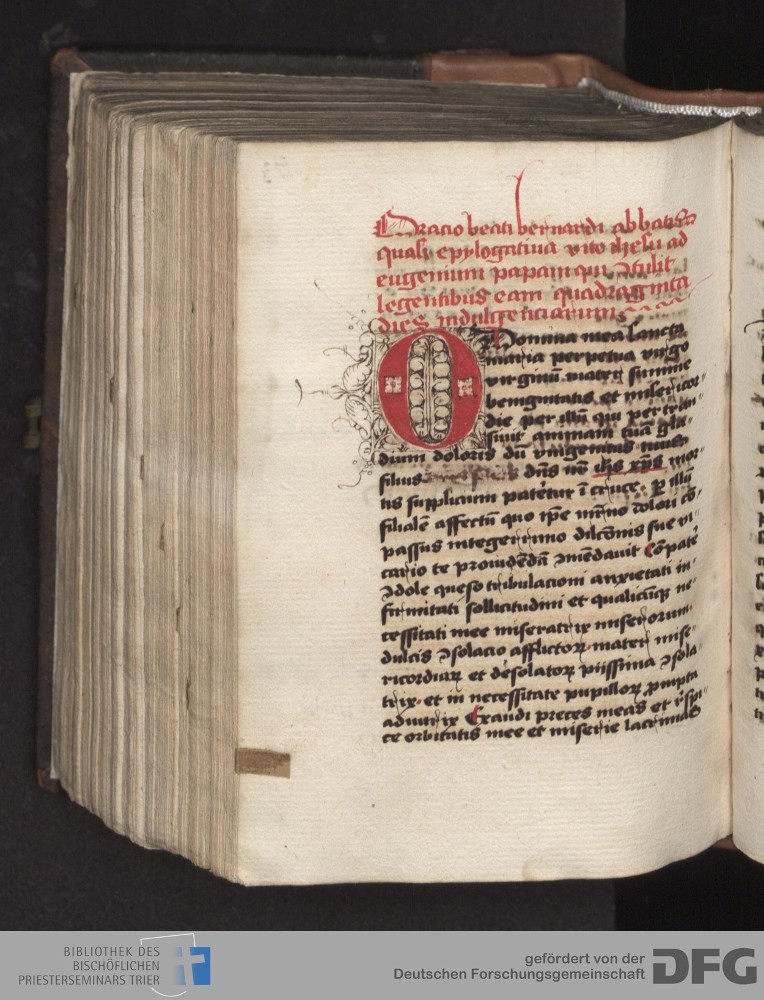 Oracio beati bernardi abbatis
quasi epylogatiua vito ihesu ad
eugenium papam qui ɔtulit
legentibus eam quadraginta
dies indulgenciarum
O Domina mea sancta
maria perpetua virgo
virginū mater summe
benignitatis et misericor-
die per illū qui pertran-
siuit animam tuā gla-
dium doloris dū vnigenitus tuus
filius dn̄s nr̄ ih̄s xp̄s mor-
tis supplicium patētur ī cruce. Per illū
filialē affectū quo ip̄e mr̄no dolori cō-
passus integerrimo sue vi-
cario te prouidēdā ɔmēdauit Cōpatē
ɔdole queso tribulacioni anxietati in-
firmitati sollicitudini et qualicūqȝ ne-
cessitati mee miseratrix miserorum.
dulcis ɔsolacio afflictoꝝ mater mise-
ricordiaꝝ et desolatoꝝ piissima ɔsola-
trix. et in necessitate pupilloꝝ prompta
adiutrix Exaudi preces meas et respi-
ce orbitatis mee et miserie lacrimas
BIBLIOTHEK DES
BISCHÖFLICHEN
PRIESTERSEMINARS TRIER
gefördert von der
Deutschen Forschungsgemeinschaft
DFG